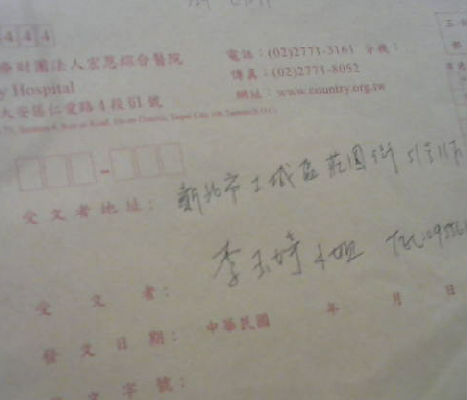 444
療財團法人宏恩綜合醫院
y Hospital
大安區仁愛路4段61號
電話：(02)2771-3161 分機：
傳真：(02)2771-8052
網址：www.country.org.tw
受文者地址：新北市土城區莊園街51號11F
受文者：李玉婷小姐 TEL:
發文日期：中華民國 年 月 日
文字號：